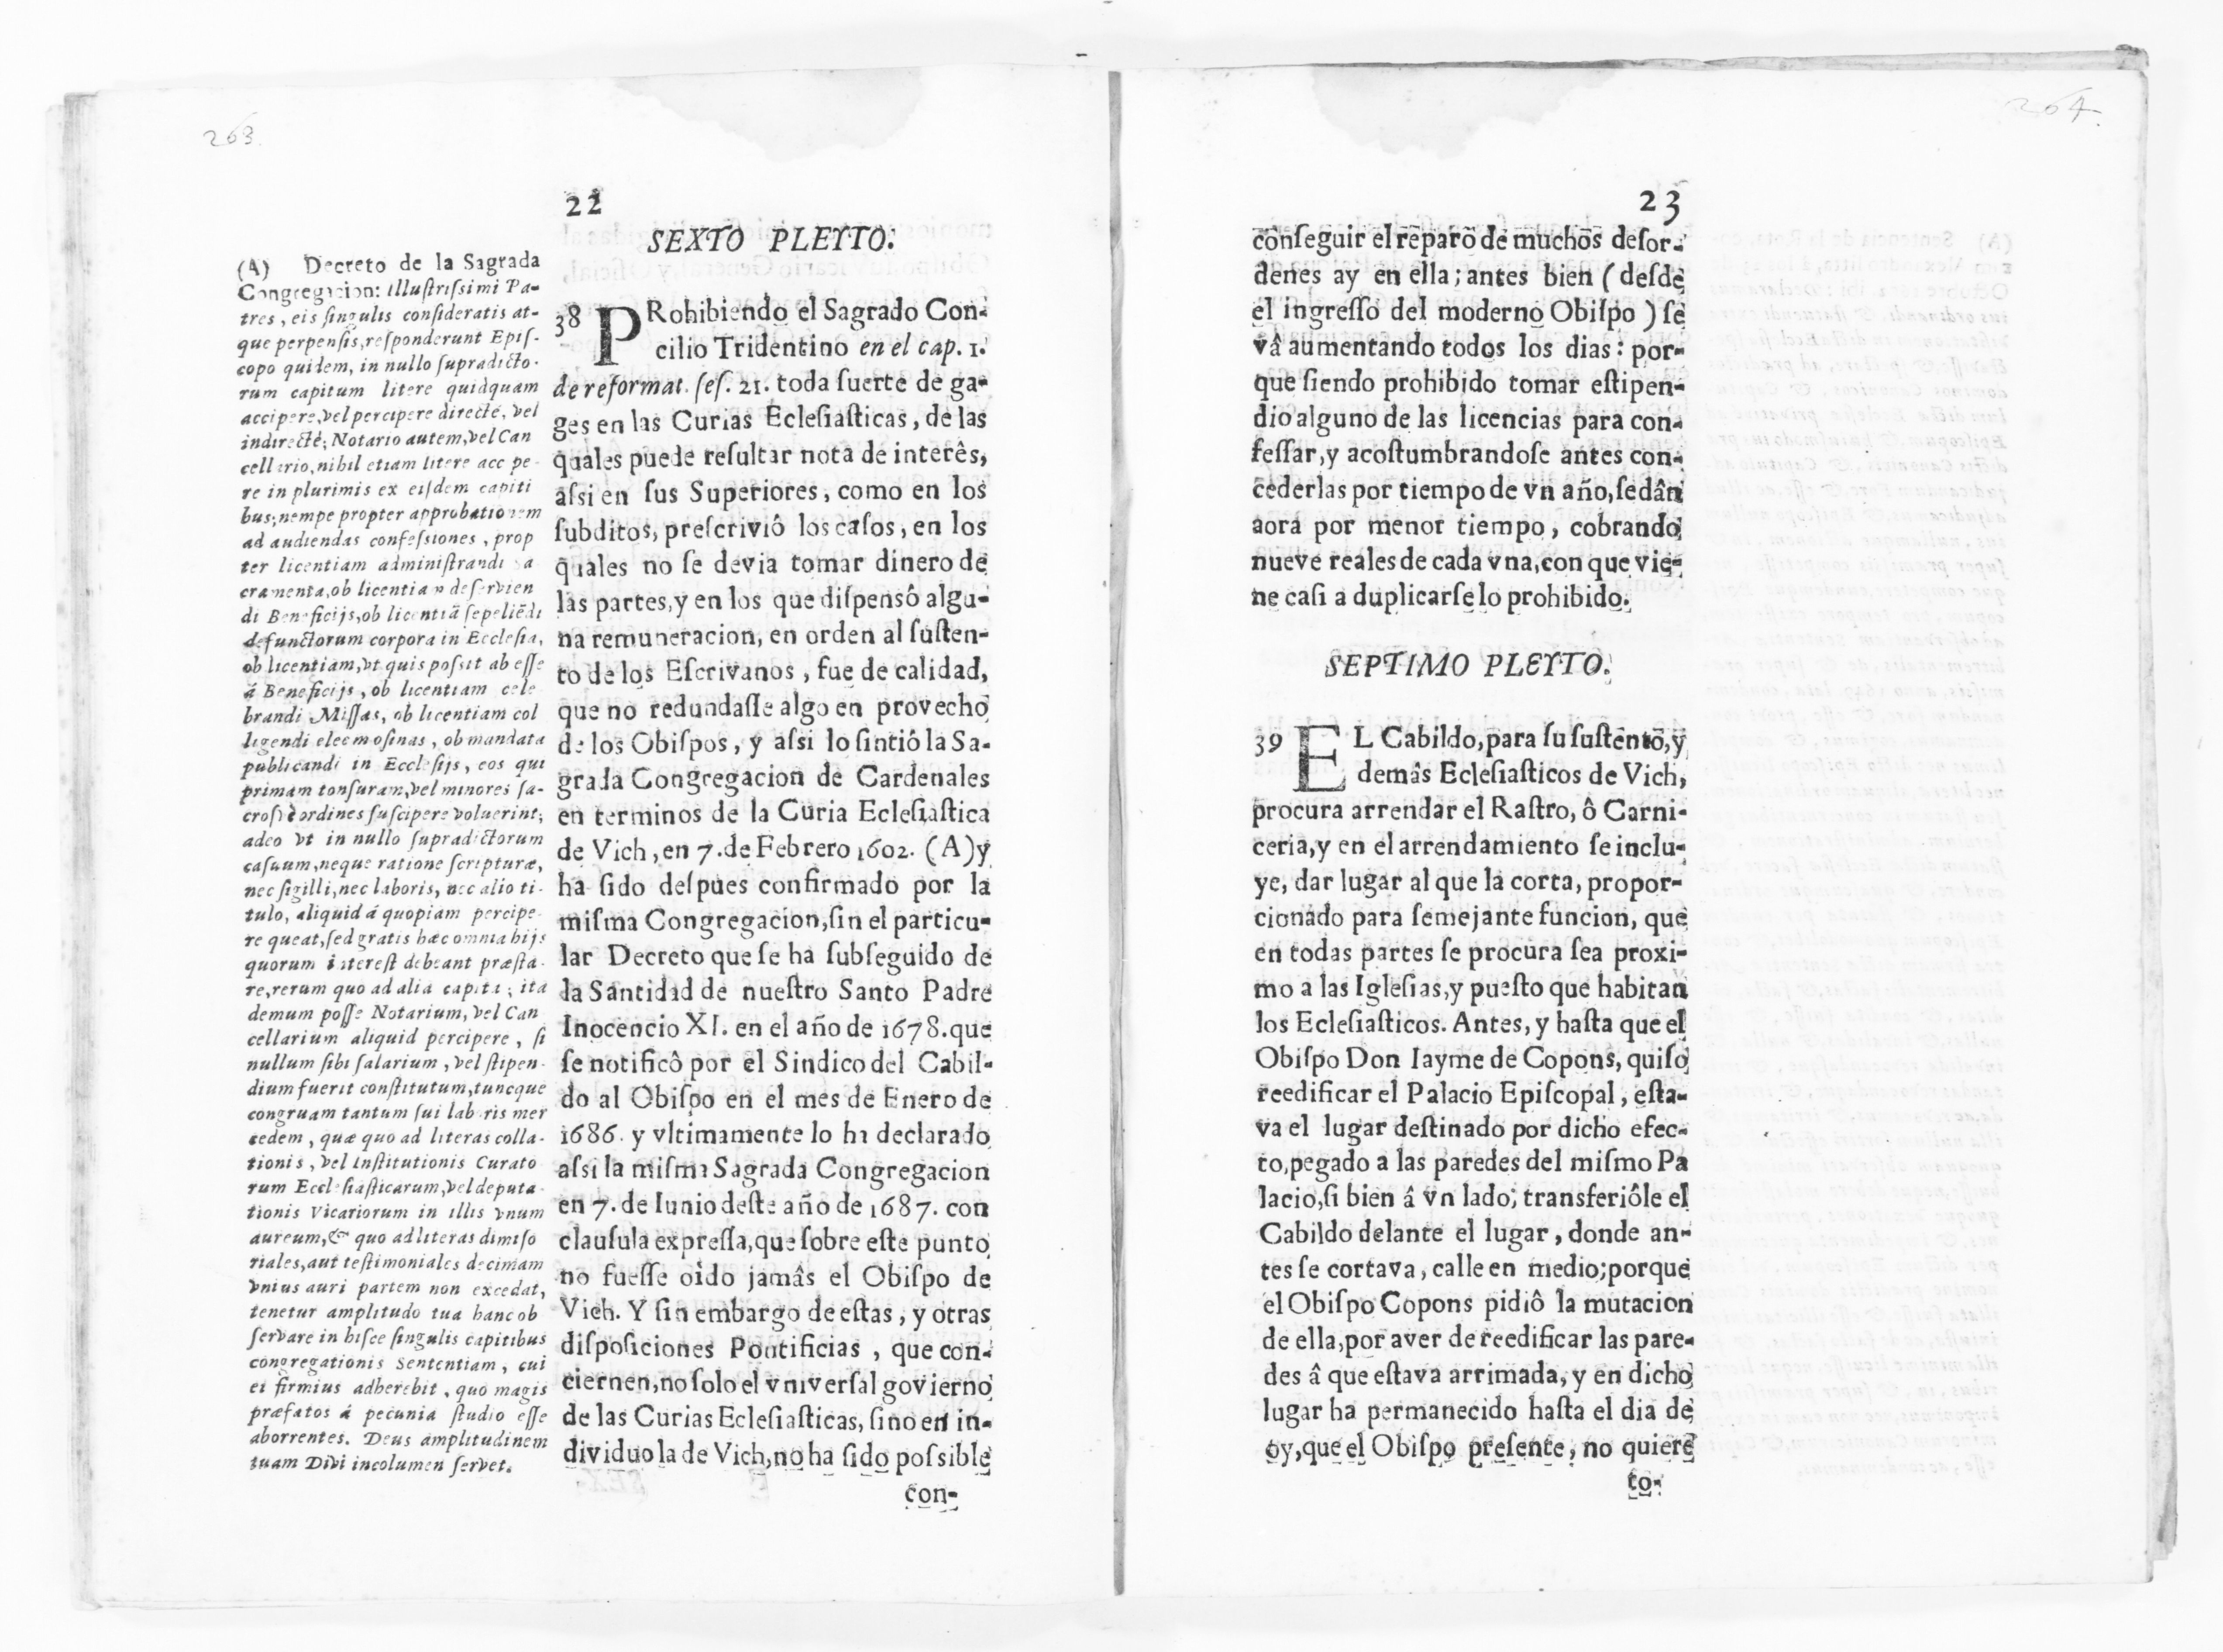 263.
22
SEXTO PLEYTO.
(A) Decreto de la Sagrada
Congregacion: Illuſtriſsimi Pa-
tres, eis ſingulis conſideratis at-
que perpenſis, reſponderunt Epiſ-
copo quidem, in nullo ſupradicto-
rum capitum litere quidquam
accipere, vel percipere directé, vel
indirecté; Notario autem, vel Can
cellario, nihil etiam litere acc pe-
re in plurimis ex eiſdem capiti
bus; nempe propter approbationem
ad audiendas confeſsiones, prop
ter licentiam adminiſtrandi ſa
cramenta, ob licentiam deſervien
di Beneficijs, ob licentiã ſepeliẽdi
defunctorum corpora in Eccleſia,
ob licentiam, vt quis poſsit ab eſſe
á Beneficijs, ob licentiam cele
brandi Miſſas, ob licentiam col
ligendi eleemoſinas, ob mandata
publicandi in Eccleſijs, eos qui
primam tonſuram, vel minores ſa-
croſ ordines ſuſcipere voluerint;
adeo vt in nullo ſupradictorum
caſuum, neque ratione ſcripturæ,
nec ſigilli, nec laboris, nec alio ti-
tulo, aliquid á quopiam percipe-
re queat, ſed gratis hæc omnia hijs
quorum intereſt debeant præſta-
re, rerum quo ad alia capita; ita
demum poſſe Notarium, vel Can
cellarium aliquid percipere, ſi
nullum ſibi ſalarium, vel ſtipen-
dium fuerit conſtitutum, tuncque
congruam tantum ſui laboris mer
cedem, quæ quo ad literas colla-
tionis, vel Inſtitutionis Curato
rum Eccleſiaſticarum, vel deputa-
tionis Vicariorum in illis vnum
aureum, & quo ad literas dimiſo
riales, aut teſtimoniales decimam
vnius auri partem non excedat,
tenetur amplitudo tua hanc ob
ſervare in hiſce ſingulis capitibus
congregationis Sententiam, cui
et firmius adherebit, quo magis
præfatos á pecunia ſtudio eſſe
aborrentes. Deus amplitudinem
tuam Divi incolumen ſervet.
38 PRohibiendo el Sagrado Con-
cilio Tridentino en el cap. 1.
de reformat. ſeſ. 21. toda ſuerte de ga-
ges en las Curias Ecleſiaſticas, de las
quales puede reſultar nota de interês,
aſsi en ſus Superiores, como en los
ſubditos, preſcriviô los caſos, en los
quales no ſe devia tomar dinero de
las partes, y en los que diſpensô algu-
na remuneracion, en orden al ſuſten-
to de los Eſcrivanos, fue de calidad,
que no redundaſſe algo en provecho
de los Obiſpos, y aſsi lo ſintiô la Sa-
grada Congregacion de Cardenales
en terminos de la Curia Ecleſiaſtica
de Vich, en 7. de Febrero 1602. (A) y
ha ſido deſpues confirmado por la
miſma Congregacion, ſin el particu-
lar Decreto que ſe ha ſubſeguido de
la Santidad de nueſtro Santo Padre
Inocencio XI. en el año de 1678. que
ſe notificô por el Sindico del Cabil-
do al Obiſpo en el mes de Enero de
1686. y vltimamente lo ha declarado
aſsi la miſma Sagrada Congregacion
en 7. de Iunio deſte año de 1687. con
clauſula expreſſa, que ſobre eſte punto
no fueſſe oìdo jamâs el Obiſpo de
Vich. Y ſin embargo de eſtas, y otras
diſpoſiciones Pontificias, que con-
ciernen, no ſolo el vniverſal govierno
de las Curias Ecleſiaſticas, ſino en in-
dividuo la de Vich, no ha ſido poſsible
con-
264.
23
conſeguir el reparo de muchos deſor-
denes ay en ella; antes bien (deſde
el ingreſſo del moderno Obiſpo) ſe
vâ aumentando todos los dias: por-
que ſiendo prohibido tomar eſtipen-
dio alguno de las licencias para con-
feſſar, y acoſtumbrandoſe antes con-
cederlas por tiempo de vn año, ſe dân
aora por menor tiempo, cobrando
nueve reales de cada vna, con que vie-
ne caſi a duplicarſe lo prohibido.
SEPTIMO PLEYTO.
39 EL Cabildo, para ſu ſuſtento, y
demâs Ecleſiaſticos de Vich,
procura arrendar el Raſtro, ô Carni-
ceria, y en el arrendamiento ſe inclu-
ye, dar lugar al que la corta, propor-
cionado para ſemejante funcion, que
en todas partes ſe procura ſea proxi-
mo a las Igleſias, y pueſto que habitan
los Ecleſiaſticos. Antes, y haſta que el
Obiſpo Don Iayme de Copons, quiſo
reedificar el Palacio Epiſcopal, eſta-
va el lugar deſtinado por dicho efec-
to, pegado a las paredes del miſmo Pa
lacio, ſi bien â vn lado; transferiôle el
Cabildo delante el lugar, donde an-
tes ſe cortava, calle en medio; porque
el Obiſpo Copons pidiô la mutacion
de ella, por aver de reedificar las pare-
des â que eſtava arrimada, y en dicho
lugar ha permanecido haſta el dia de
oy, que el Obiſpo preſente, no quiere
to-